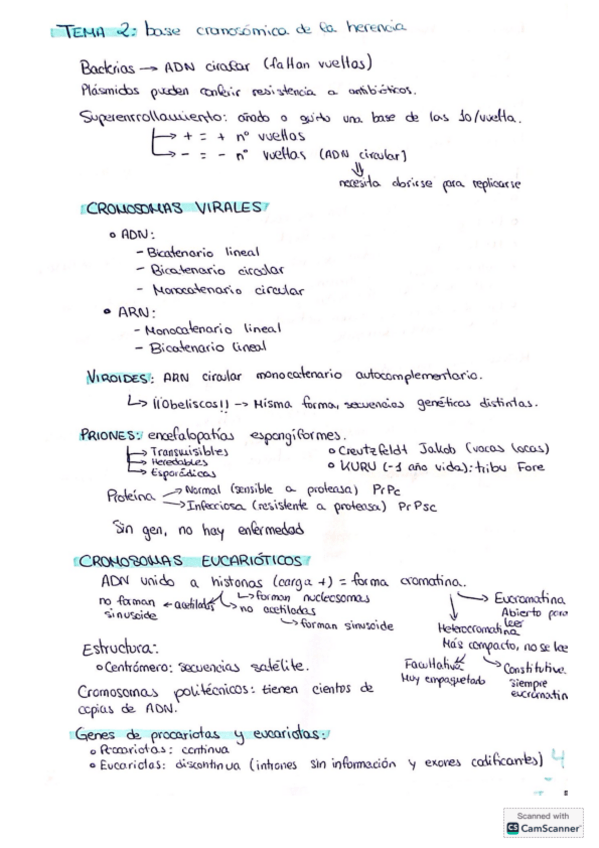 TEMA 2: base cromosómica de la herencia
Bacterias → ADN circular (faltan vueltas)
Plásmidos pueden conferir resistencia a antibióticos.
Superenrrollamiento: añado o quito una base de las 10/vuelta.
→ + = + nº vueltas
→ - = - nº vueltas (ADN circular]
⇓
necesita abrirse para replicarse
CROMOSOMAS VIRALES
• ADN:
- Bicatenario lineal
- Bicatenario circular
- Monocatenario circular
• ARN:
- Monocatenario lineal
- Bicatenario lineal
VIROIDES: ARN circular monocatenario autocomplementario.
↳ ¡¡Obeliscos!! → Misma forma, secuencias genéticas distintas.
PRIONES: encefalopatías espongiformes.
→ Transmisibles
→ Heredables
→ Esporádicas
• Creutzfeldt Jakob (vacas locas)
• KURU (-1 año vida): tribu Fore
Proteína → Normal (sensible a proteasa) PrPc
→ Infecciosa (resistente a proteasa) PrPsc
Sin gen, no hay enfermedad
CROMOSOMAS EUCARIÓTICOS
ADN unido a histonas (carga +) = forma cromatina.
↳ forman nucleosomas
no forman sinusoide ← acetiladas
no acetiladas
↳ forman sinusoide
→ Eucromatina
Abierto para leer
Heterocromatina
Más compacto, no se lee
Facultativa
Muy empaquetado
Constitutiva.
siempre
eucromatin
Estructura:
• Centrómero: secuencias satélite.
Cromosomas politécnicos: tienen cientos de
copias de ADN.
Genes de procariotas y eucariotas:
• Procariotas: continua
• Eucariotas: discontinua (intrones sin información y exones calificantes)
4
Scanned with
CS CamScanner